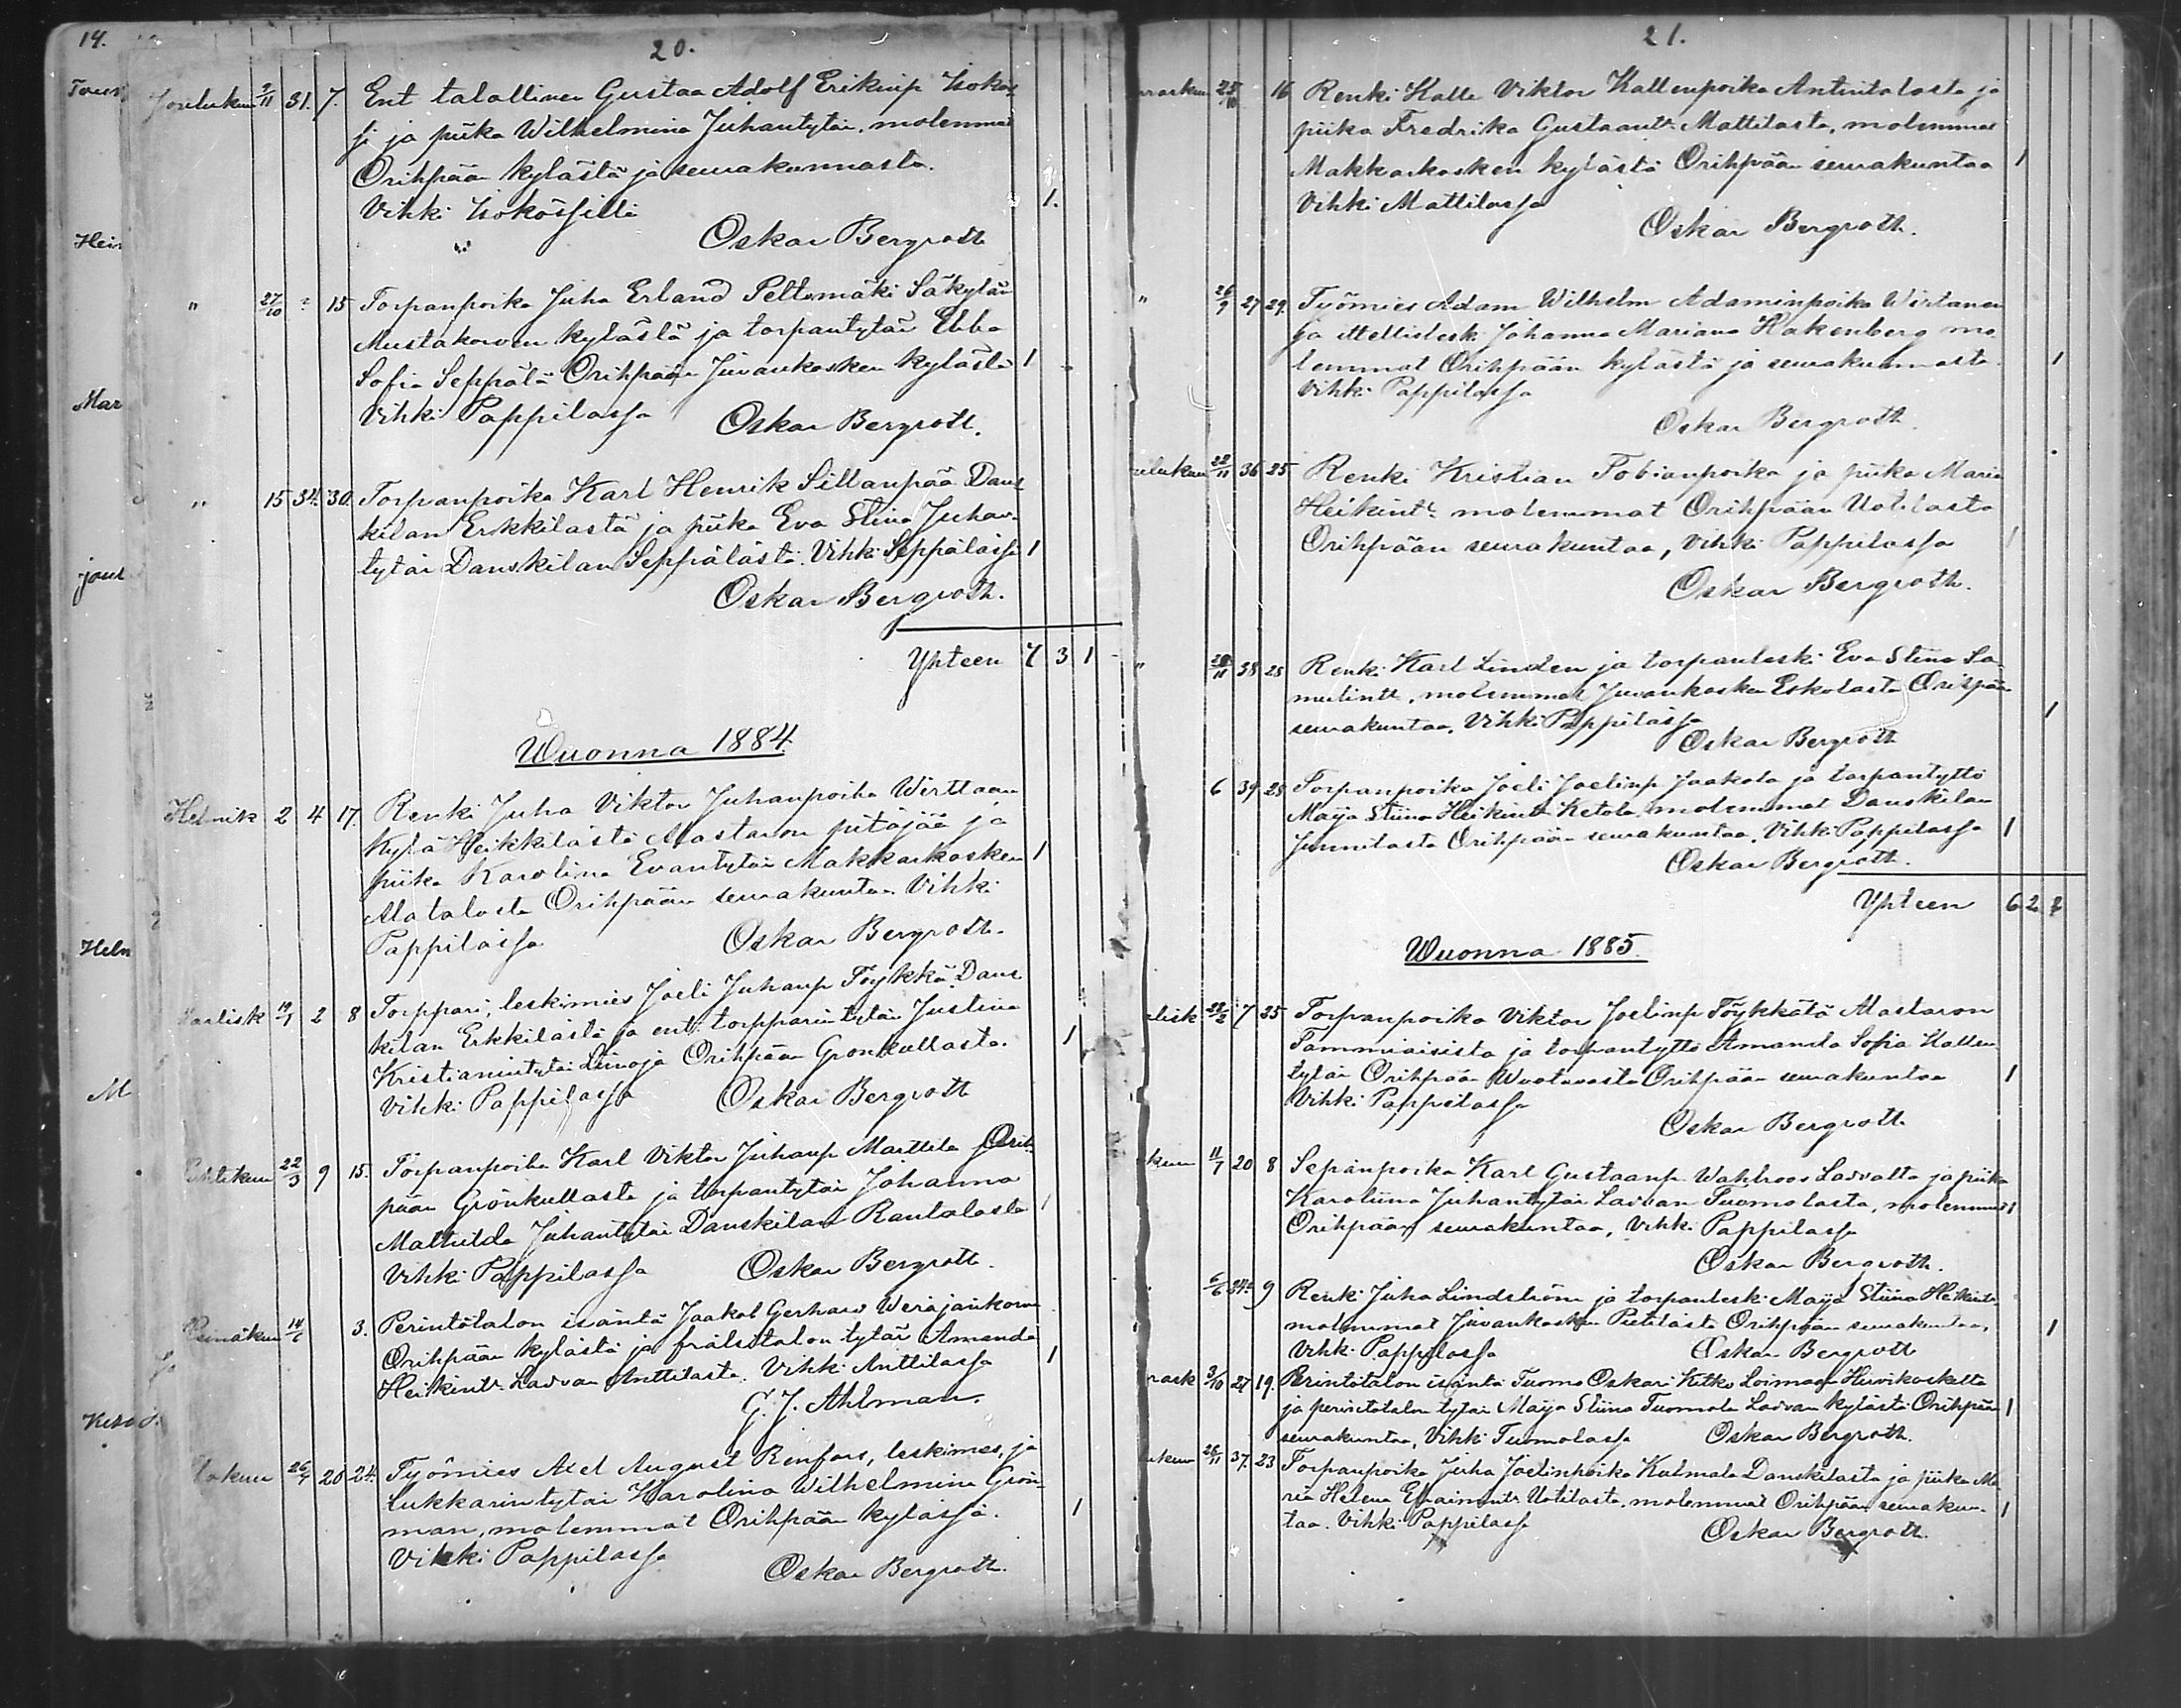 14.
20.
Joulukuu 9/11 31. 7. Ent talollinen Gustaa Adolf Erikinp Isokös
si ja piika Wilhelmina Juhantytär, molemmat
Orihpään kylästä ja seurakunnasta.
Vihki Isokössillä 1.
Oskar Bergroth
" 27/10 15 Torpanpoika Juha Erland Peltomäki Säkylän
Mustakorven kylästä ja torpantytär Ebba
Sofia Seppälä Orihpään Juvankosken kylästä 1
Vihki Pappilassa Oskar Bergroth.
" 15 34. 30. Torpanpoika Karl Henrik Sillanpää Dans
kilan Erkkilästä ja piika Eva Stina Juhan-
tytär Danskilan Seppälästä. Vihki Seppälässä 1
Oskar Bergroth.
Yhteen 7 3 1
Wuonna 1884
Helmik 2 4 17. Renki Juha Viktor Juhanpoika Wirttaan
Kylä Heikkilästä Alastaron pitäjää ja
piika Karolina Evantytär Makkarkosken 1
Alatalosta Orihpään seurakuntaa. Vihki
Pappilassa Oskar Bergroth.
Maalisk 19/1 2 8 Torppari, leskimies Joeli Juhanp Töykkä Dans
kilan Erkkilästä ja ent. torpparin tytär Justina
Kristianintytär Liinoja Orihpään Gronkullasta. 1
Vihki Pappilassa Oskar Bergroth
Huhtikuu 22/3 9 15. Torpanpoika Karl Viktor Juhanp Marttila Orih-
pään Grönkullasta ja torpantytär Johanna
Mathilda Juhantytär Danskilan Rantalasta 1
Vihki Pappilassa Oskar Bergroth.
Heinäkuu 14/6 3. Perintötalon isäntä Jaakob Gerhard
Orihpään kylästä ja frälsitalon tytär Amanda
Heikintr. Ladvan Anttilasta. Vihki Anttilassa 1
G. J. Ahlman.
Elokuu 26/7 20 24. Työmies Axel August Renfors, leskimies, ja
lukkarintytär Karolina Wilhelmina Grön-
man, molemmat Orihpään kylässä. 1
Vihki Pappilassa
Oskar Bergroth.
21.
marraskuu 25/10 16 Renki Kalle Viktor Kallenpoika Antintalosta ja
piika Fredrika Gustaantr. Mattilasta, molemmat
Makkarkosken kylästä Orihpään seurakuntaa 1
Vihki Mattilassa
Oskar Bergroth.
" 26/9 27 29. Työmies Adam Wilhelm Adaminpoika Wirtanen
ja Johanna Mariana Hakenberg mo
lemmat Orihpään kylästä ja seurakunnasta. 1
Vihki Pappilassa
Oskar Bergroth.
joulukuu 22/11 36 25 Renki Kristian Tobianpoika ja piika Maria
Heikintr. molemmat Orihpään Uotilasta
Orihpään seurakuntaa, Vihki Pappilassa 1
Oskar Bergroth.
" 28/11 38 28 Renki Karl Linden ja torpanleski Eva Stina Sa-
muelintr, molemmat Juvankosken Eskolasta Orihpään
seurakuntaa, Vihki Pappilassa 1
Oskar Bergroth
6 39 28 Torpanpoika Joeli Joelinp Jaakola ja torpantyttö
Maija Stina Heikintr Ketola, molemmat Danskilan
Junnilasta Orihpään seurakuntaa, Vihki Pappilassa 1
Oskar Bergroth.
Yhteen 6 2 2
Wuonna 1885.
Maalisk 22/2 7 25 Torpanpoika Viktor Joelinp Töykkälä Alastaron
Tammiaisista ja torpantyttö Amanda Sofia Kallen
tytär Orihpään Orihpään seurakuntaa 1
Vihki Pappilassa
Oskar Bergroth
kuu 11/7 20 8 Sepänpoika Karl Gustaanp. Wahlroos Ladvalta ja piika
Karoliina Juhantytär Ladvan Tuomolasta, molemmat 1
Orihpään seurakuntaa, Vihki Pappilassa
Oskar Bergroth.
6/6 24 9 Renki Juha Lindström ja torpanleski Maija Stiina Heikintr.
molemmat Juvankosken Pietilästä Orihpään seurakuntaa, 1
Vihki Pappilassa Oskar Bergroth
marrask 3/10 27 19. Perintötalon isäntä Tuomo Oskari Kitko Loimaan Hirvikoskelta
ja perintötalon tytär Maija Stiina Tuomola Ladvan kylästä Orihpään 1
seurakuntaa, Vihki Tuomolassa Oskar Bergroth.
joulukuu 26/11 37. 23 Torpanpoika Juha Joelinpoika Kulmala Danskilasta ja piika Ma
ria Helena Efraimintr. Uotilasta, molemmat Orihpään seurakun- 1
taa. Vihki Pappilassa Oskar Bergroth.